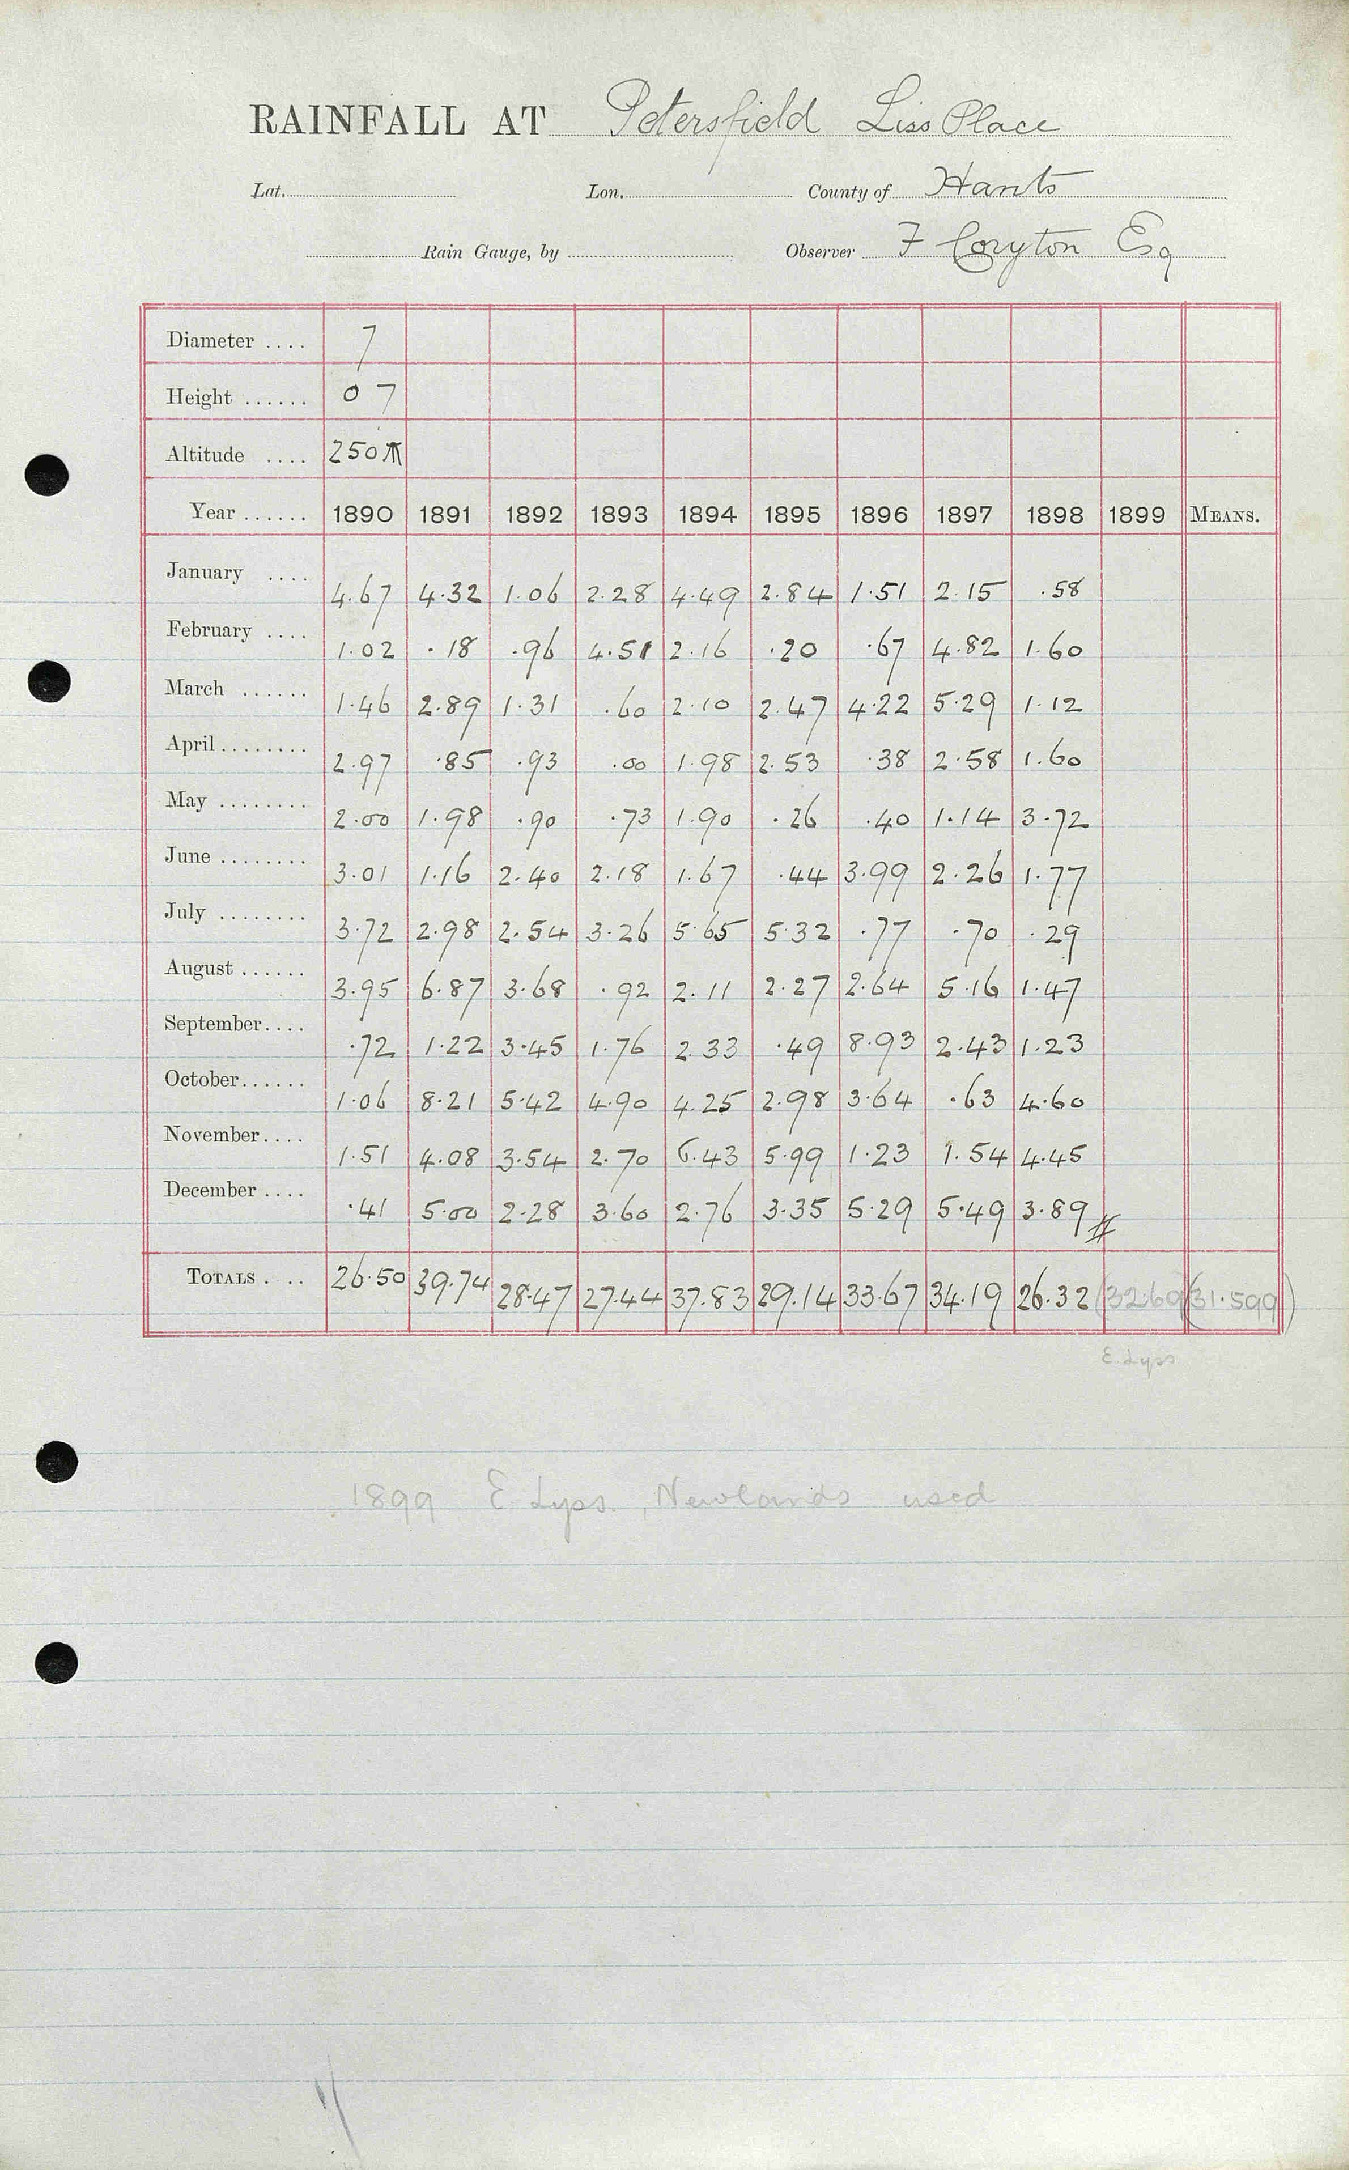 RAINFALL AT Petersfield Liss Place
Lat. Lon. County of Hants
Rain Gauge, by Observer F Coryton Esq
Diameter .... 7
Height ...... 0 7
Altitude .... 250
Year ...... 1890 1891 1892 1893 1894 1895 1896 1897 1898 1899 MEANS.
January .... 4.67 4.32 1.06 2.28 4.49 2.84 1.51 2.15 .58
February .... 1.02 .18 .96 4.51 2.16 .20 .67 4.82 1.60
March ...... 1.46 2.89 1.31 .60 2.10 2.47 4.22 5.29 1.12
April ........ 2.97 .85 .93 .00 1.98 2.53 .38 2.58 1.60
May ........ 2.00 1.98 .90 .73 1.90 .26 .40 1.14 3.72
June ........ 3.01 1.16 2.40 2.18 1.67 .44 3.99 2.26 1.77
July ........ 3.72 2.98 2.54 3.26 5.65 5.32 .77 .70 .29
August ...... 3.95 6.87 3.68 .92 2.11 2.27 2.64 5.16 1.47
September.... .72 1.22 3.45 1.76 2.33 .49 8.93 2.43 1.23
October...... 1.06 8.21 5.42 4.90 4.25 2.98 3.64 .63 4.60
November.... 1.51 4.08 3.54 2.70 6.43 5.99 1.23 1.54 4.45
December .... .41 5.00 2.28 3.60 2.76 3.35 5.29 5.49 3.89 #
TOTALS . .. 26.50 39.74 28.47 27.44 37.83 29.14 33.67 34.19 26.32 (32.69) (31.599)
E. Lyss
1899 E Lyss, Newlands used